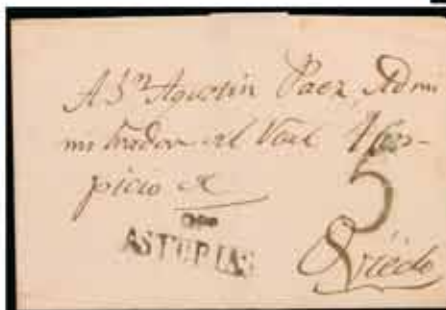 A Dn Agustin Paez, Admi
nistrador del Real Hos-
picio de
5
ASTURIAS
Oviedo